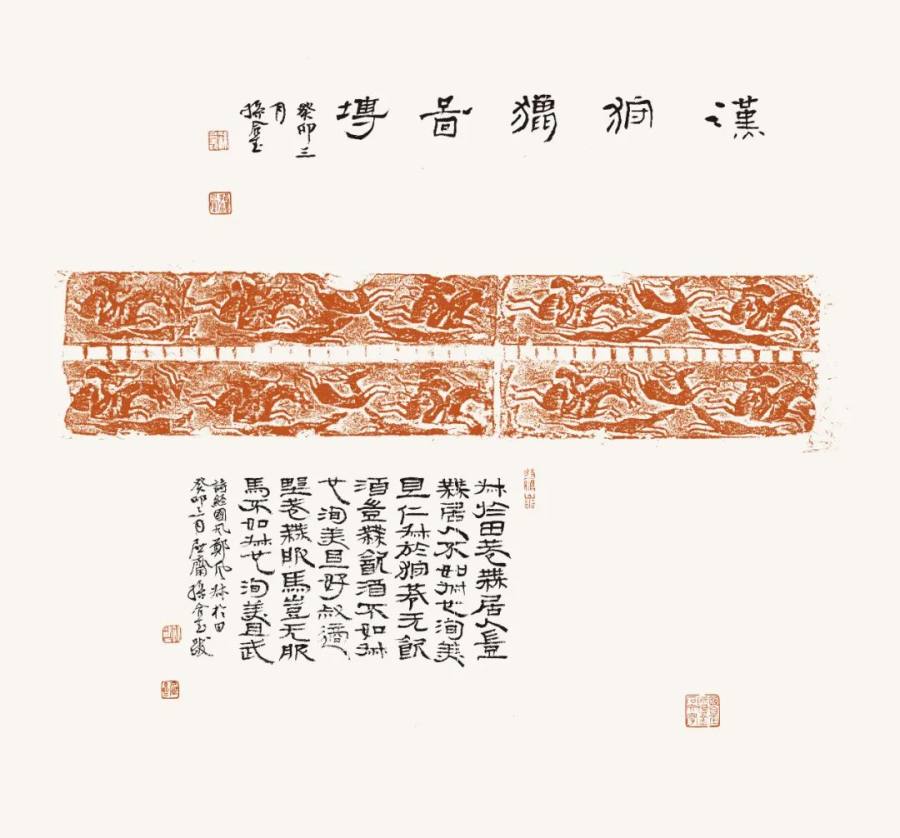 漢狩獵啚塼
癸卯三
月
叔於田巷無居人豈
無居人不如叔也洵美
且仁叔於狩巷无飲
酒豈無飲酒不如叔
也洵美且好叔適
野巷無服馬豈无服
馬不如叔也洵美且武
詩經國風鄭風叔於田
癸卯三月